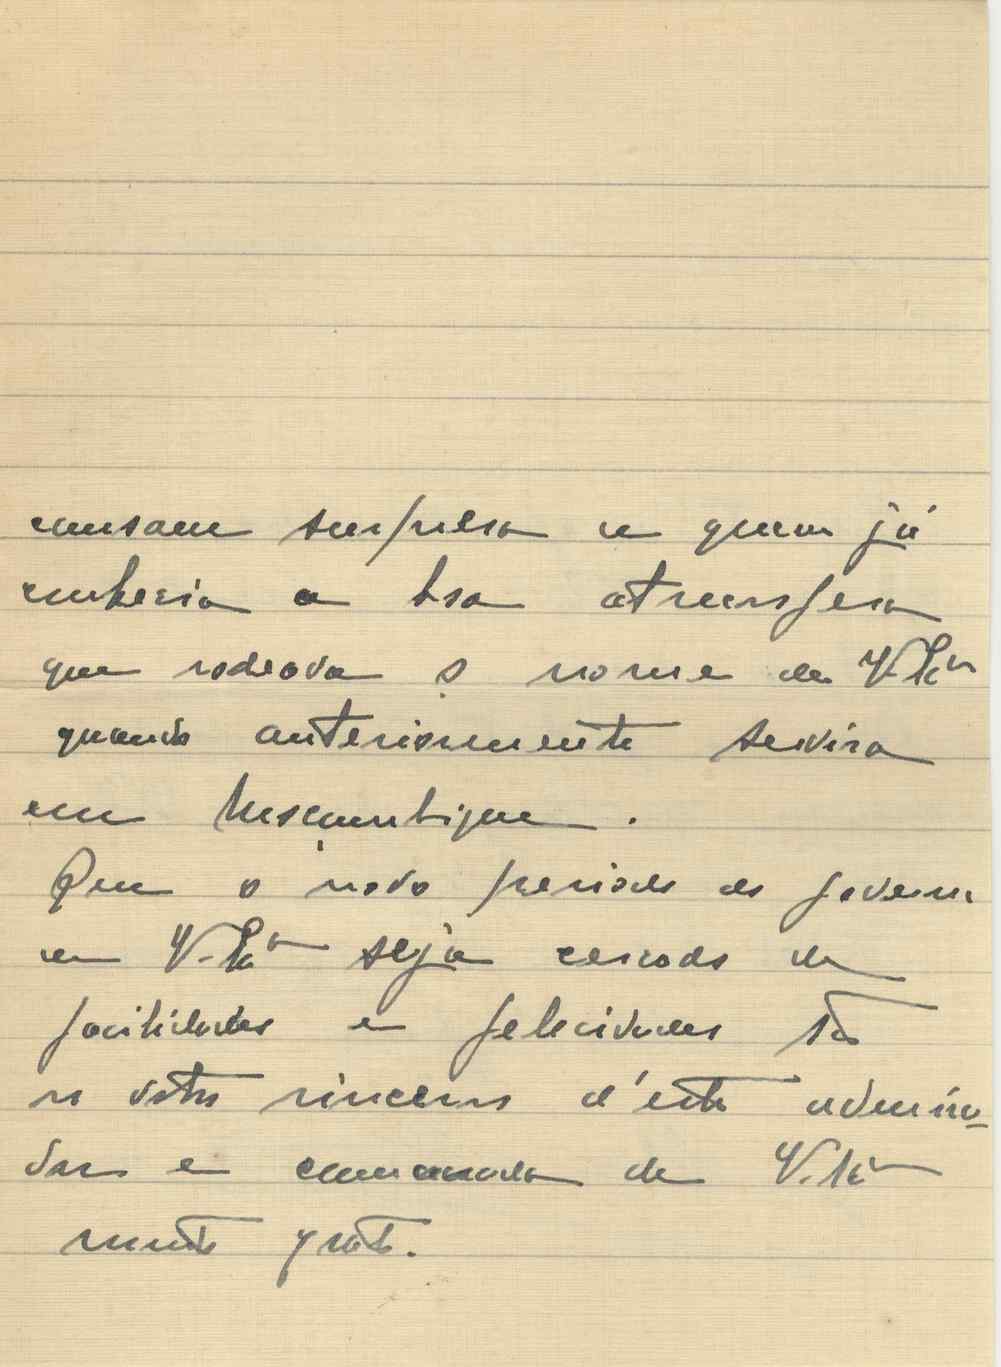 causam surpresa a quem já
conhecia a boa atmosfera
que rodeava o nome de V. Exª
quando anteriormente servira
em Moçambique.
Que o novo periodo de governo
de V. Exª seja coroado de
facilidades e felicidades são
os votos sinceros d'este admira-
dor e camarada de V. Exª
muito grato.